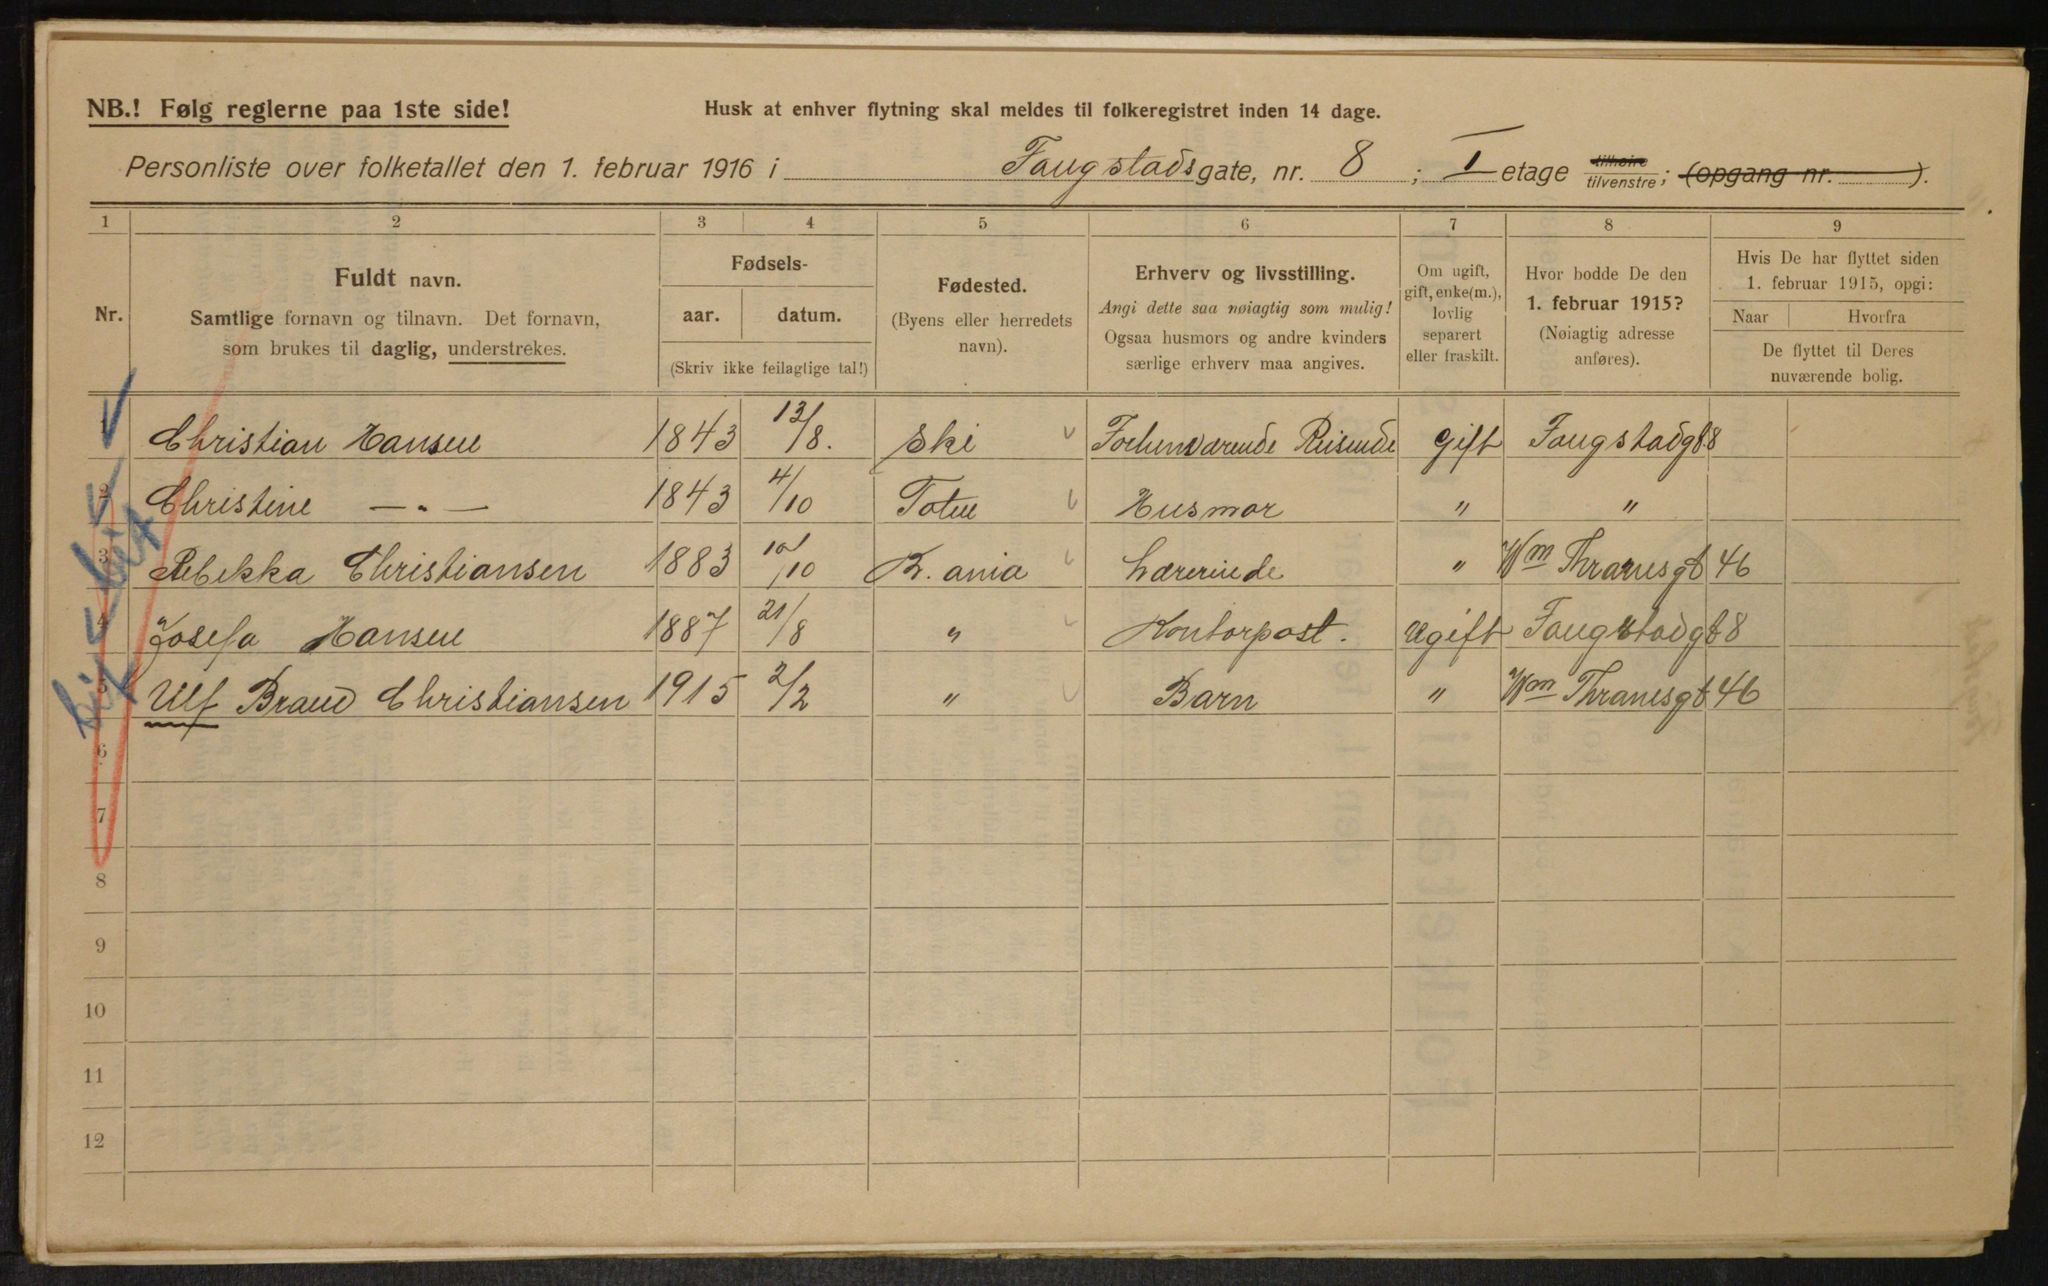 NB.! Følg reglerne paa 1ste side!
Husk at enhver flytning skal meldes til folkeregistret inden 14 dage.
Personliste over folketallet den 1. februar 1916 i Faugstadsgate, nr. 8 ; I etage tilhøire tilvenstre ; (opgang nr. ).
1 2 3 4 5 6 7 8 9
Nr.
Fuldt navn.
Samtlige fornavn og tilnavn. Det fornavn,
som brukes til daglig, understrekes.
Fødsels-
aar. datum.
(Skriv ikke feilagtige tal!)
Fødested.
(Byens eller herredets
navn).
Erhverv og livsstilling.
Angi dette saa nøiagtig som mulig!
Ogsaa husmors og andre kvinders
særlige erhverv maa angives.
Om ugift,
gift, enke(m.),
lovlig
separert
eller fraskilt.
Hvor bodde De den
1. februar 1915?
(Nøiagtig adresse
anføres).
Hvis De har flyttet siden
1. februar 1915, opgi:
Naar Hvorfra
De flyttet til Deres
nuværende bolig.
1 Christian Hansen 1843 13/8. Ski Forhenværende Reisende Gift Faugstadgt 8
2 Christine — „ — 1843 4/10 Toten Husmor „ „
3 Rebekka Christiansen 1883 10/10 Kr.ania Lærerinde „ Wm Thranesgt 46
4 Josefa Hansen 1887 21/8 „ Kontorpost. Ugift Faugstadgt 8
5 Ulf Brand Christiansen 1915 2/2 „ Barn „ Wm Thranesgt 46
6
7
8
9
10
11
12